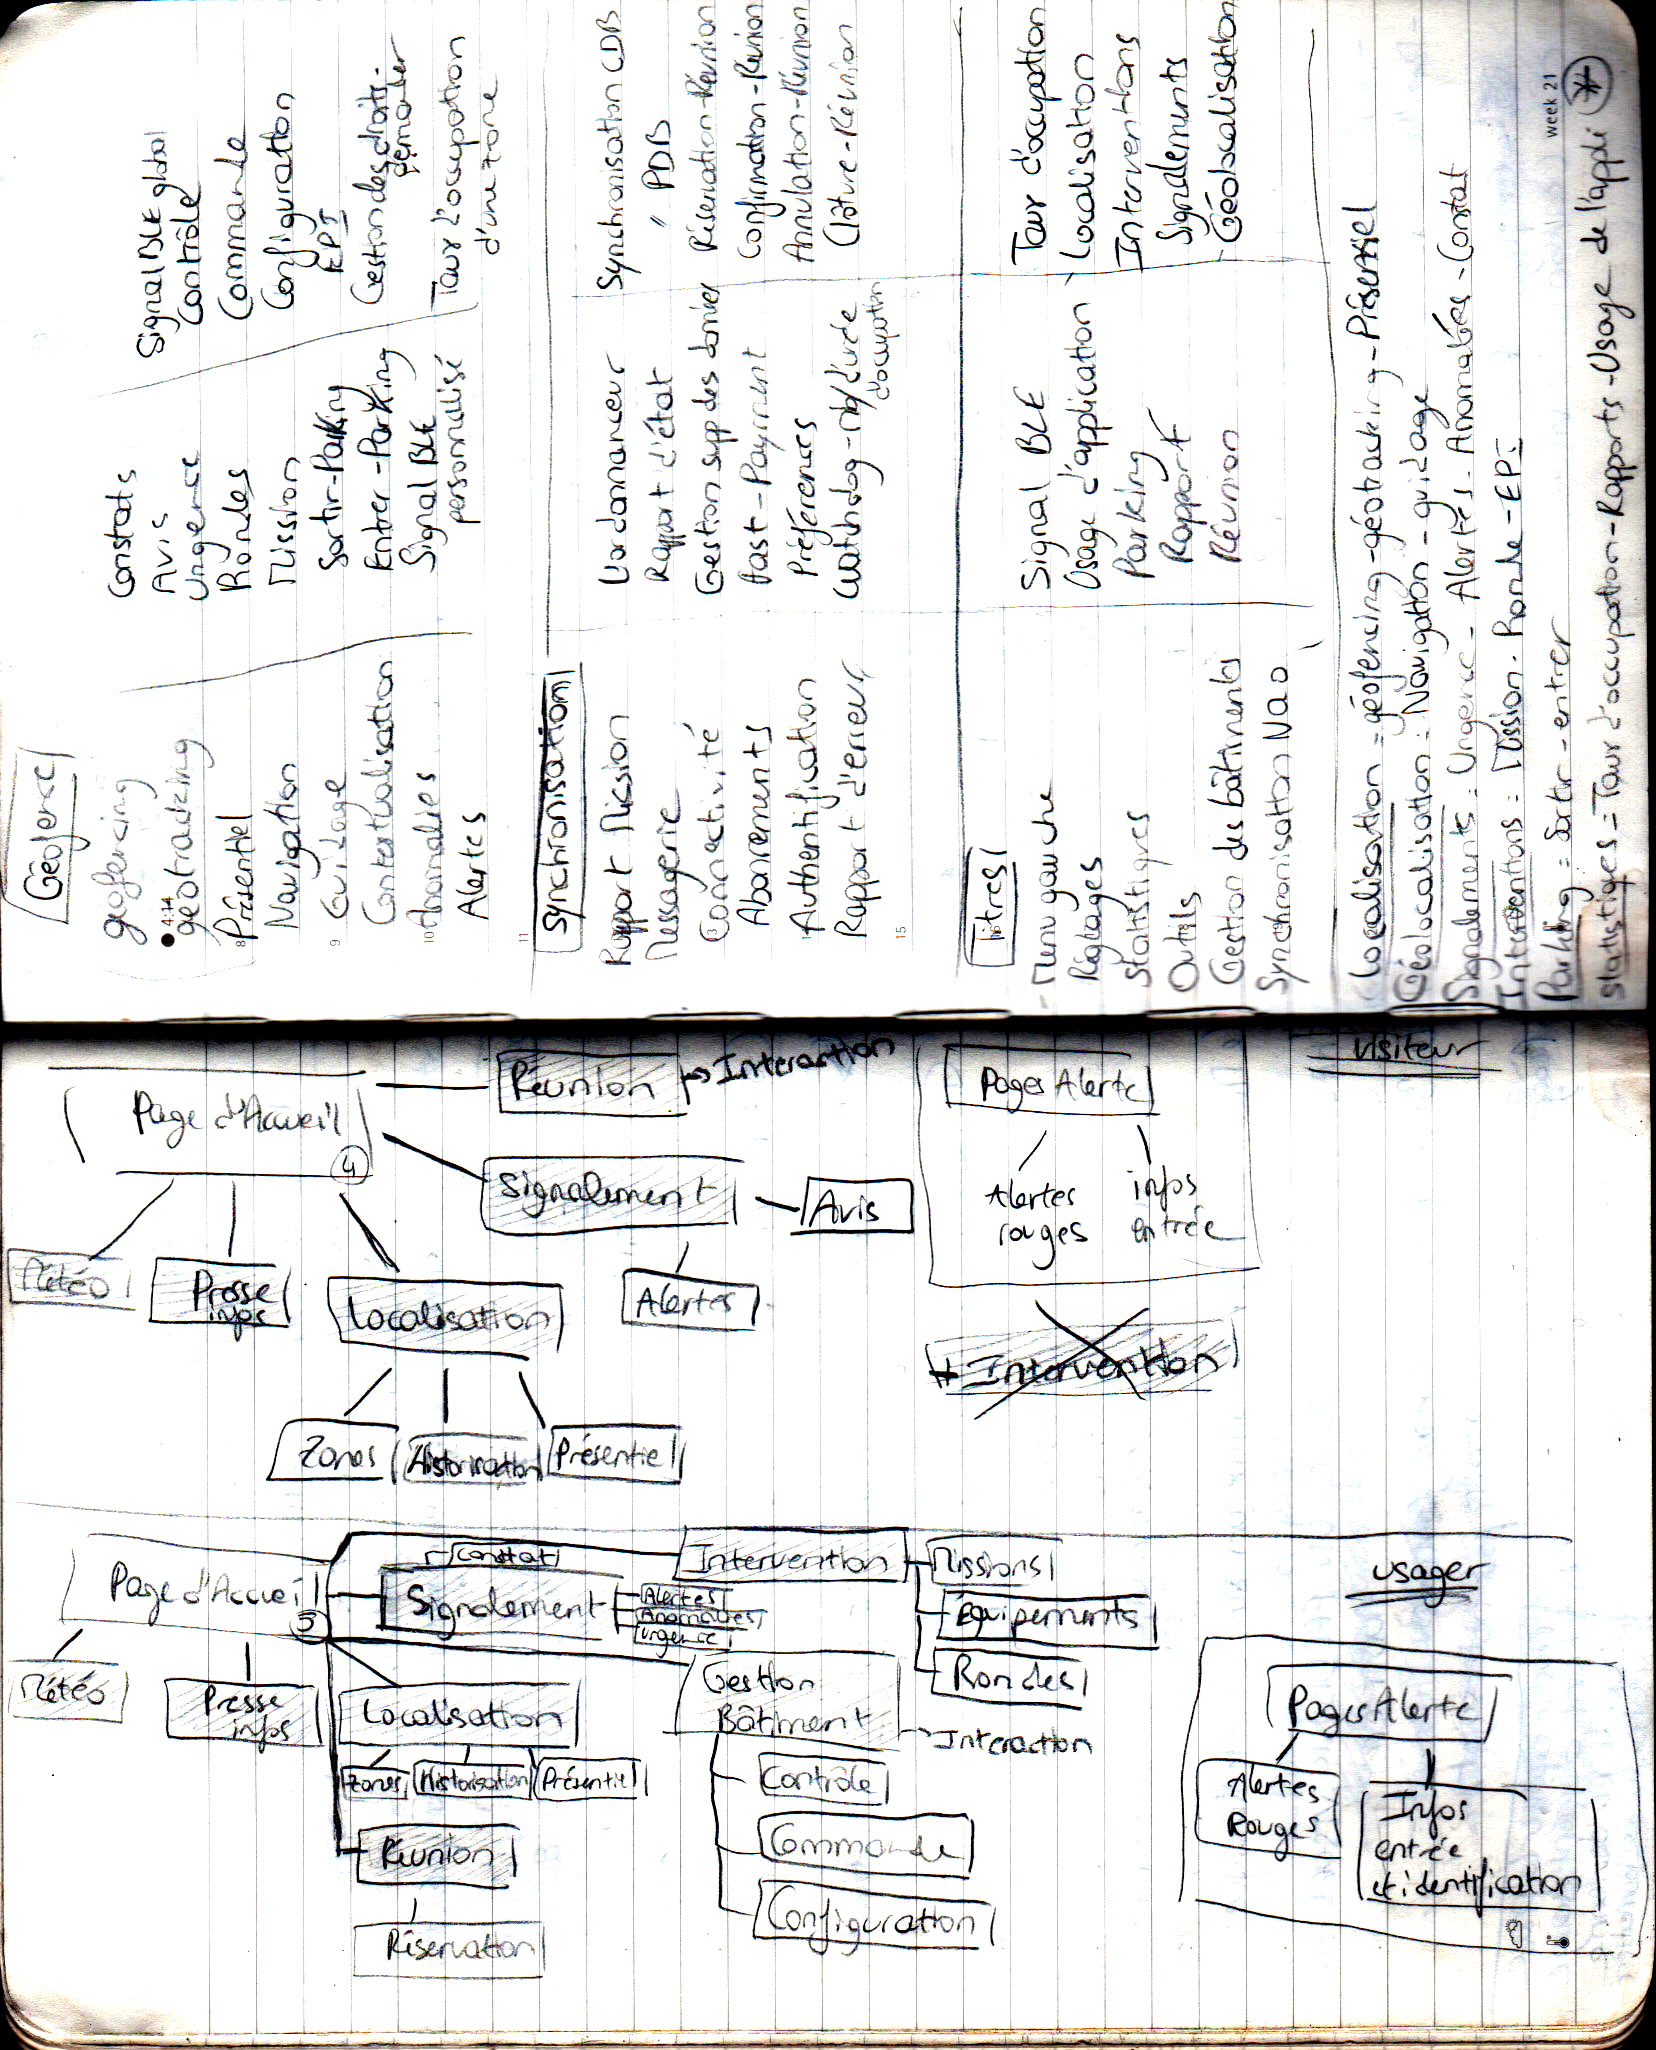 Géofence
geofencing
géotracking
Présentiel
Navigation
Guidage
Contextualisation
Anomalies
Alertes
Constats
Avis
Urgence
Rondes
Mission
Sortir-Parking
Entrer-Parking
Signal BLE
personnalisé
Signal BLE global
Contrôle
Commande
Configuration
EPI
Gestion des droits-
Taux d'occupation
d'une zone
Synchronisation
Rapport Mission
Messagerie
Connectivité
Abonnements
Authentification
Rapport d'erreur
Lordonnanceur
Rapport d'état
Gestion supp des données
Fast-Payment
Préférences
Watchdog-nb/durée
d'occupation
Synchronisation CDB
" PDB
Réservation-Réunion
Confirmation-Réunion
Annulation-Réunion
Clôture-Réunion
Titres
- Menu gauche
Réglages
Statistiques
Outils
Gestion des bâtiments
Synchronisation Nao
Signal BLE
Usage d'application
Parking
Rapport
Réunion
Taux d'occupation
Localisation
Interventions
Signalements
Géolocalisation
Localisation = géofencing-géotracking-Présentiel
Géolocalisation = Navigation-guidage
Signalements = Urgence - Alertes - Anomalies - Constat
Interventions = Mission - Ronde - EPI
Parking = Sortir - entrer
Statistiques = Taux d'occupation-Rapports-Usage de l'appli
week 21
8
9
10
11
15
visiteur
Page d'Accueil
4
Réunion
Interaction
Signalement
Avis
Alertes
Météo
Presse
infos
Localisation
Zones
Historisation
Présentiel
Pages Alerte
Alertes
rouges
infos
entrée
+ Intervention
usager
Page d'Accueil
5
Constat
Signalement
Alertes
Anomalies
Urgence
Intervention
Missions
Équipements
Rondes
Météo
Presse
infos
Localisation
Zones
Historisation
Présentiel
Réunion
Réservation
Gestion
Bâtiment
Interaction
Contrôle
Commande
Configuration
Pages Alerte
Alertes
Rouges
Infos
entrée
et identification